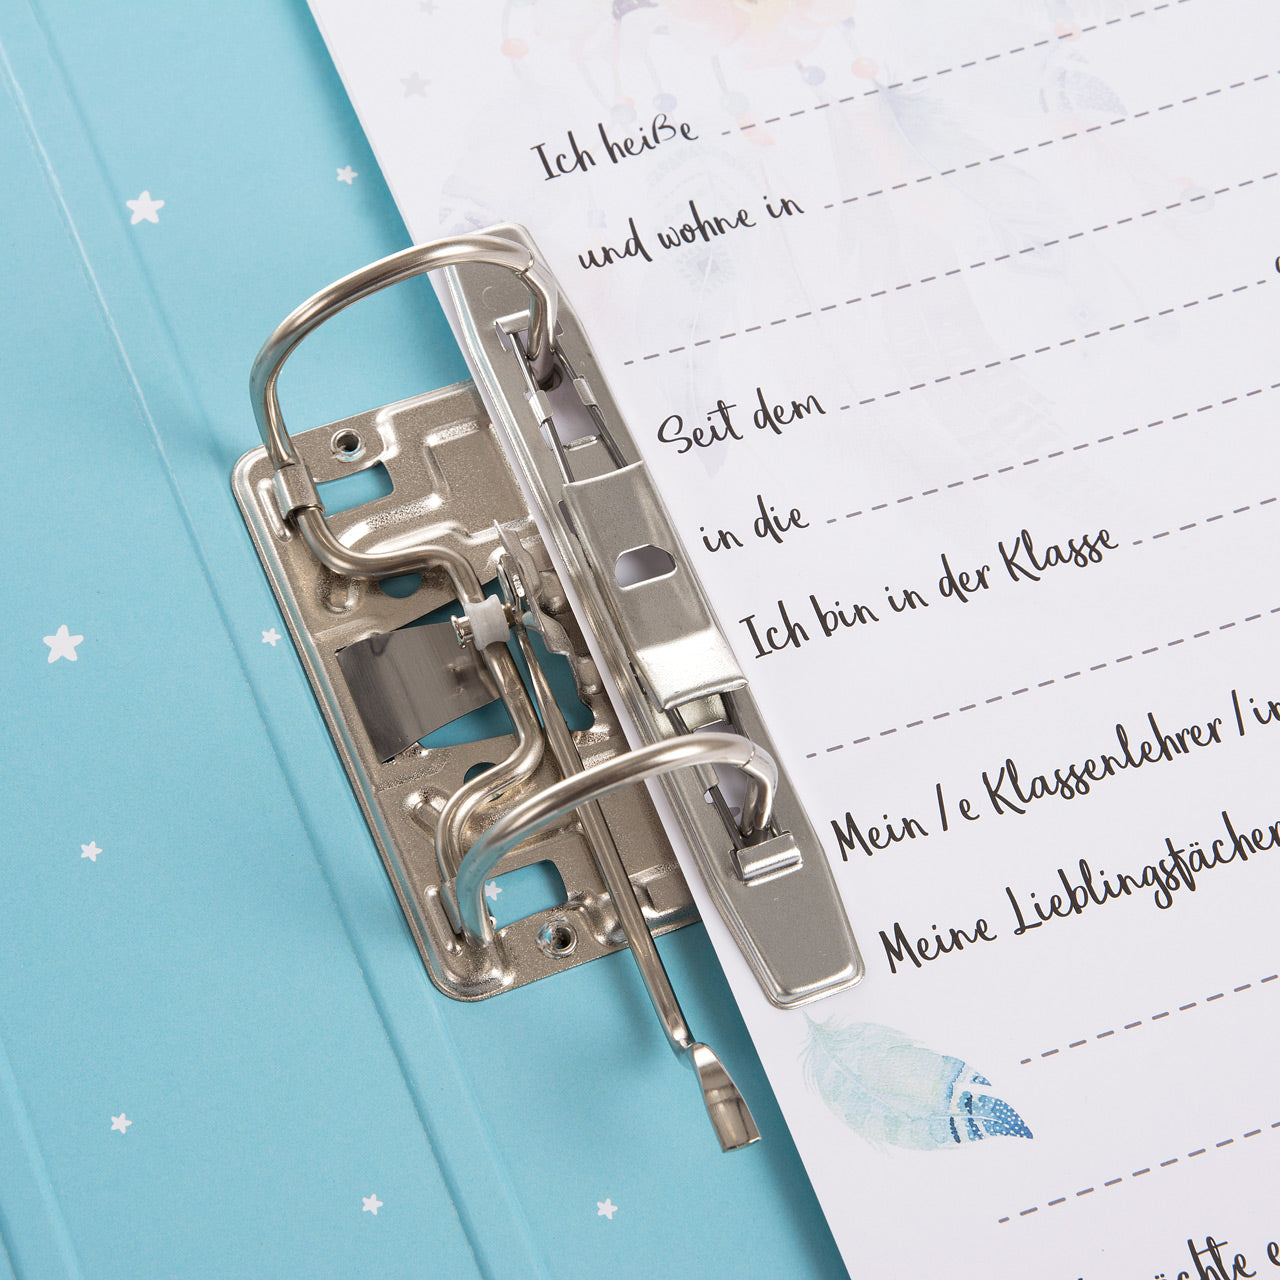 Ich heiße
und wohne in
Seit dem
in die
Ich bin in der Klasse
Mein / e Klassenlehrer / in
Meine Lieblingsfächer